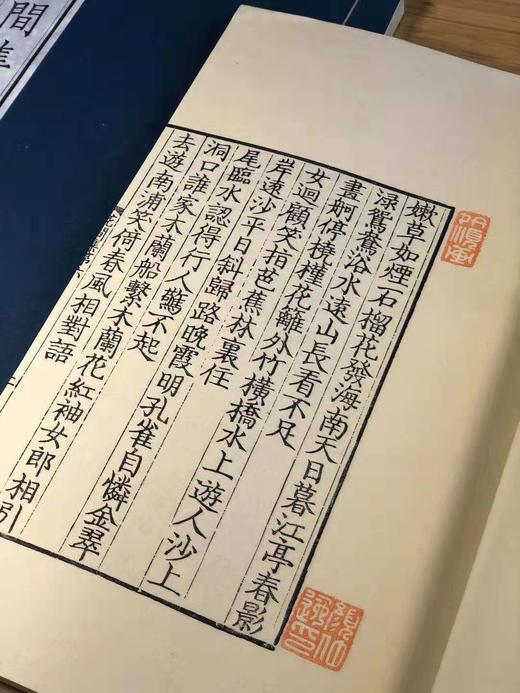 嫩草如煙石榴花發海南天日暮江亭春影
淥鴛鴦浴水遠山長看不足
畫舸停橈槿花籬外竹橫橋水上遊人沙上
女迴顧笑指芭蕉林裏住
岸遠沙平日斜歸路晚霞明孔雀自憐金翠
尾臨水認得行人驚不起
洞口誰家木蘭船繫木蘭花紅袖女郎相引
去遊南浦笑倚春風相對語
間